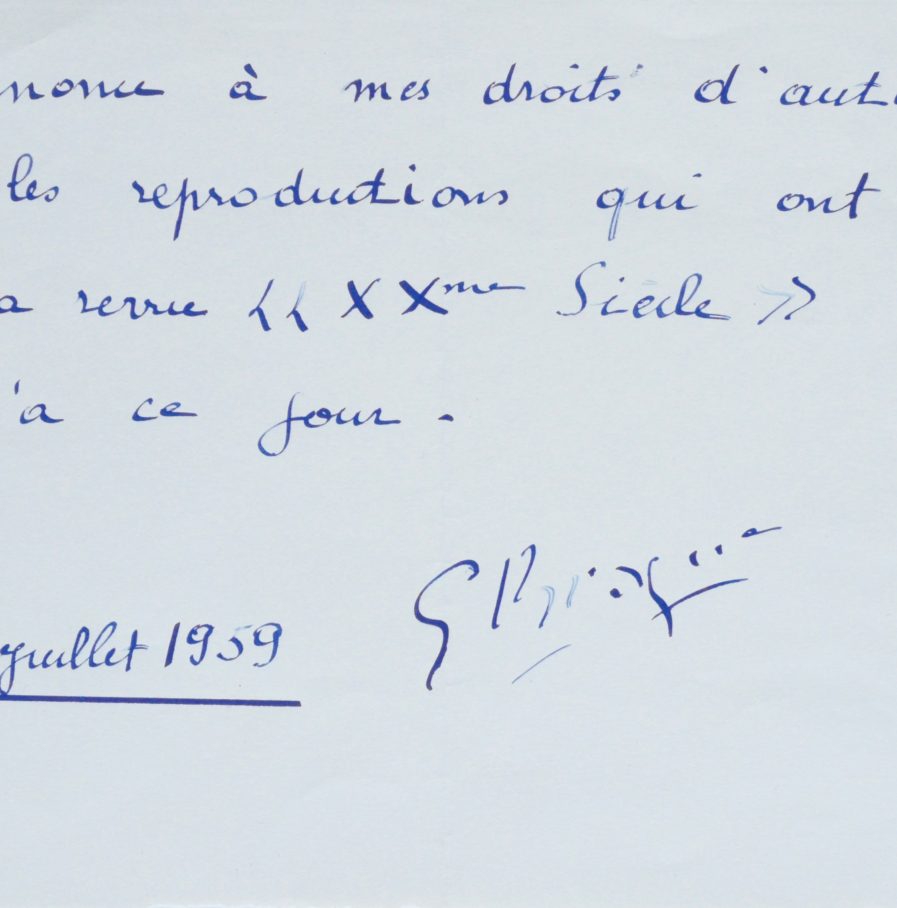 nonce à mes droits d'aut
les reproductions qui ont
a revue << XXme Siècle >>
'a ce jour.
juillet 1959
G Braque